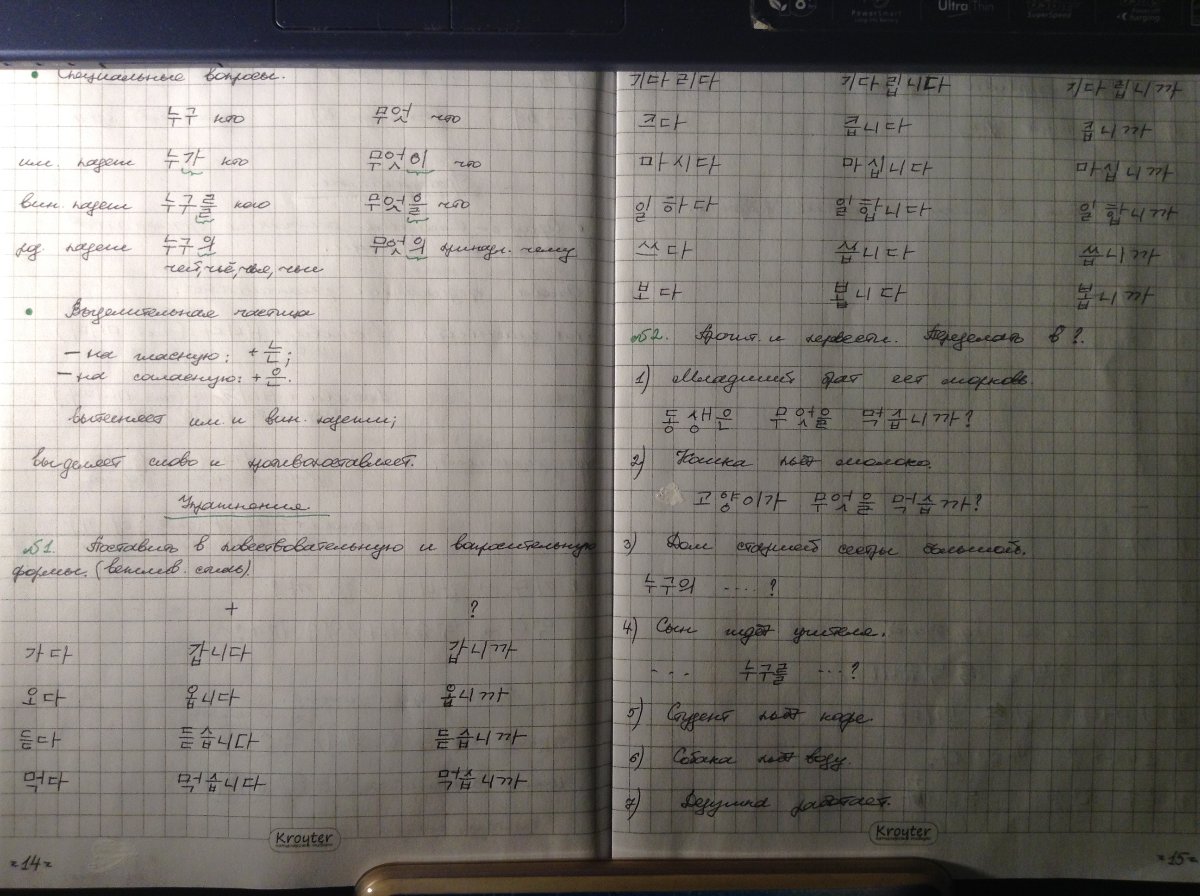 • Специальные вопросы.
누구 кто 무엇 что
им. падеж 누가 кто 무엇이 что
вин. падеж 누구를 кого 무엇을 что
род. падеж 누구의 무엇의 принадл. чему
чей, чьё, чья, чьи
• Выделительная частица
— на гласную: + 는;
— на согласную: + 은.
вытесняет им. и вин. падежи;
выделяет слово и противопоставляет.
Упражнения
№1. Поставить в повествовательную и вопросительную
формы. (вежлив. стиль).
+ ?
가다 갑니다 갑니까
오다 옵니다 옵니까
듣다 듣습니다 듣습니까
먹다 먹습니다 먹습니까
Kroyter
-14-
기다리다 기다립니다 기다립니까
크다 큽니다 큽니까
마시다 마십니다 마십니까
일하다 일합니다 일합니까
쓰다 씁니다 씁니까
보다 봅니다 봅니까
№2. Прочит. и перевести. Переделать в ?.
1) Младший брат ест морковь.
동생은 무엇을 먹습니까?
2) Кошка пьёт молоко.
고양이가 무엇을 먹습까?
3) Дом старшей сестры большой.
누구의 ....?
4) Сын ждёт учителя.
... 누구를 ...?
5) Студент пьёт кофе.
6) Собака пьёт воду.
7) Дедушка работает.
Kroyter
-15-
Ultra Thin
PowerSmart
SuperSpeed